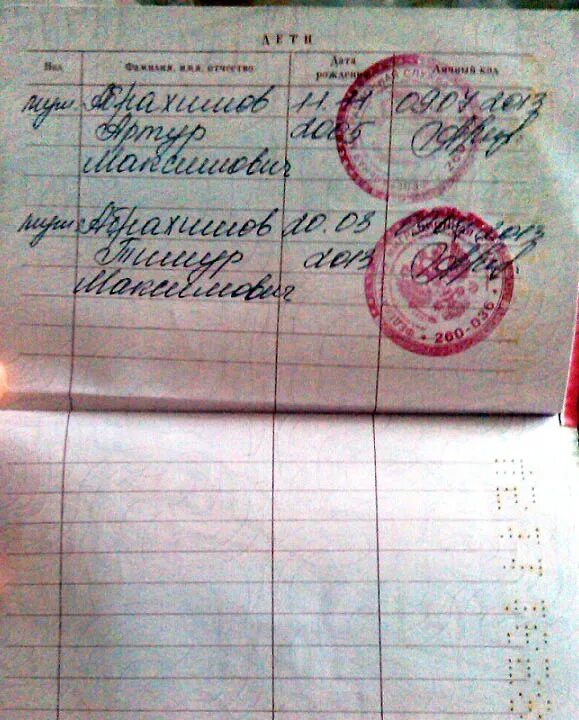 ДЕТИ
Пол Фамилия, имя, отчество Дата рождения Личный код
муж. Абрахимов 11.11 09.07.2013
Артур 2005
Максимович
муж. Абрахимов 20.03 2013
Тимур 2013
Максимович
260-036